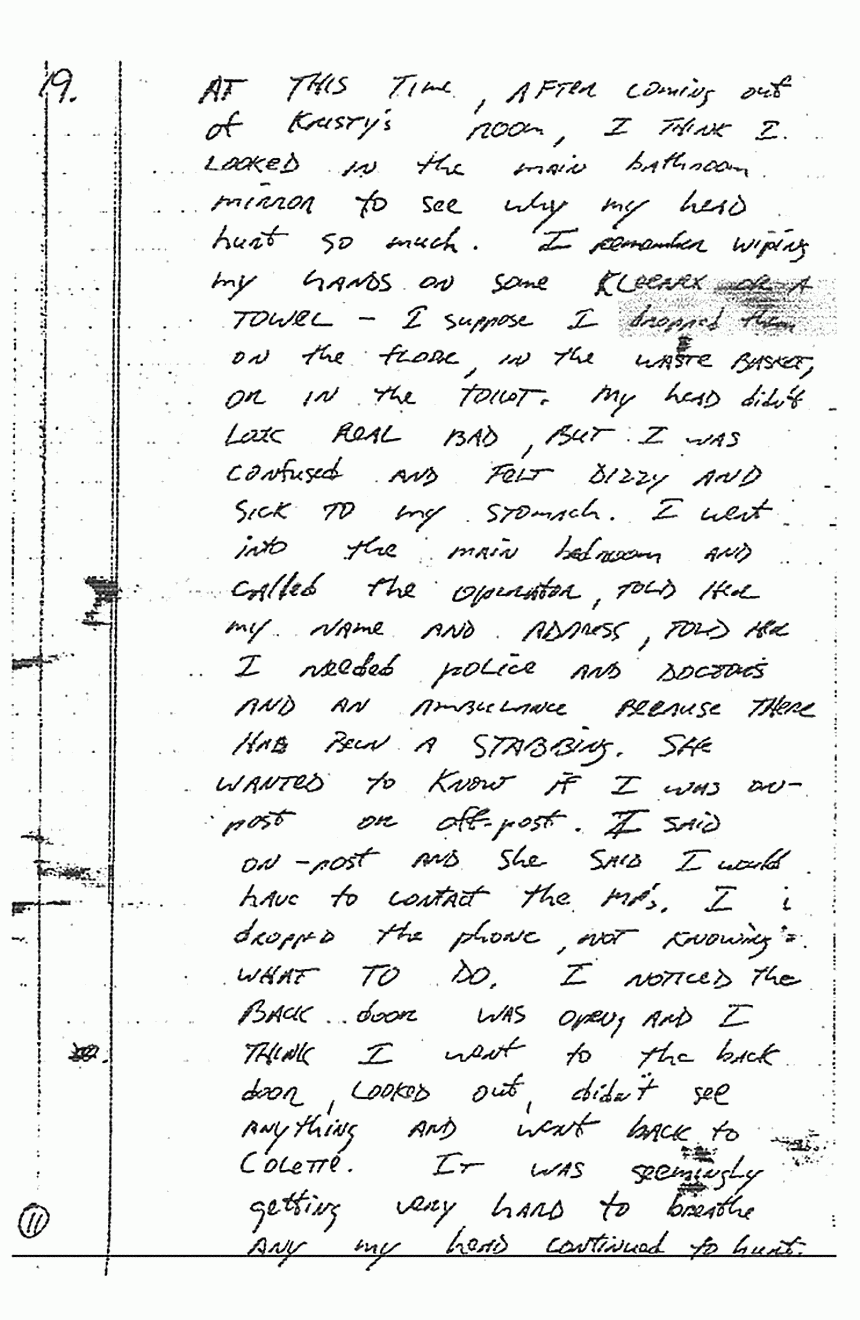 19. AT THIS TIME, AFTER coming out
of KRISTY'S room, I THINK I
LOOKED IN the main bathroom
mirror to see why my head
hurt so much. I remember wiping
my hands on some KLEENEX OR A
TOWEL - I suppose I dropped them
ON the floor, IN the WASTE BASKET,
OR IN the TOILET. My head didn't
Look REAL BAD, BUT I WAS
confused AND FELT DIZZY AND
SICK TO my STOMACH. I went
into the main bedroom AND
called the operator, TOLD HER
my NAME AND ADDRESS, TOLD HER
I needed police AND DOCTORS
AND AN AMBULANCE BECAUSE THERE
HAD BEEN A STABBING. SHE
WANTED to KNOW IF I WAS ON-
post OR off-post. I SAID
ON-post AND she SAID I would
have to contact the MP's. I
dropped the phone, not knowing
WHAT TO DO. I NOTICED the
BACK door WAS open, AND I
THINK I went to the back
door, LOOKED out, didn't see
ANYthing AND went BACK to
COLETTE. IT WAS seemingly
getting very HARD to breathe
ANY my head continued to hurt.
11